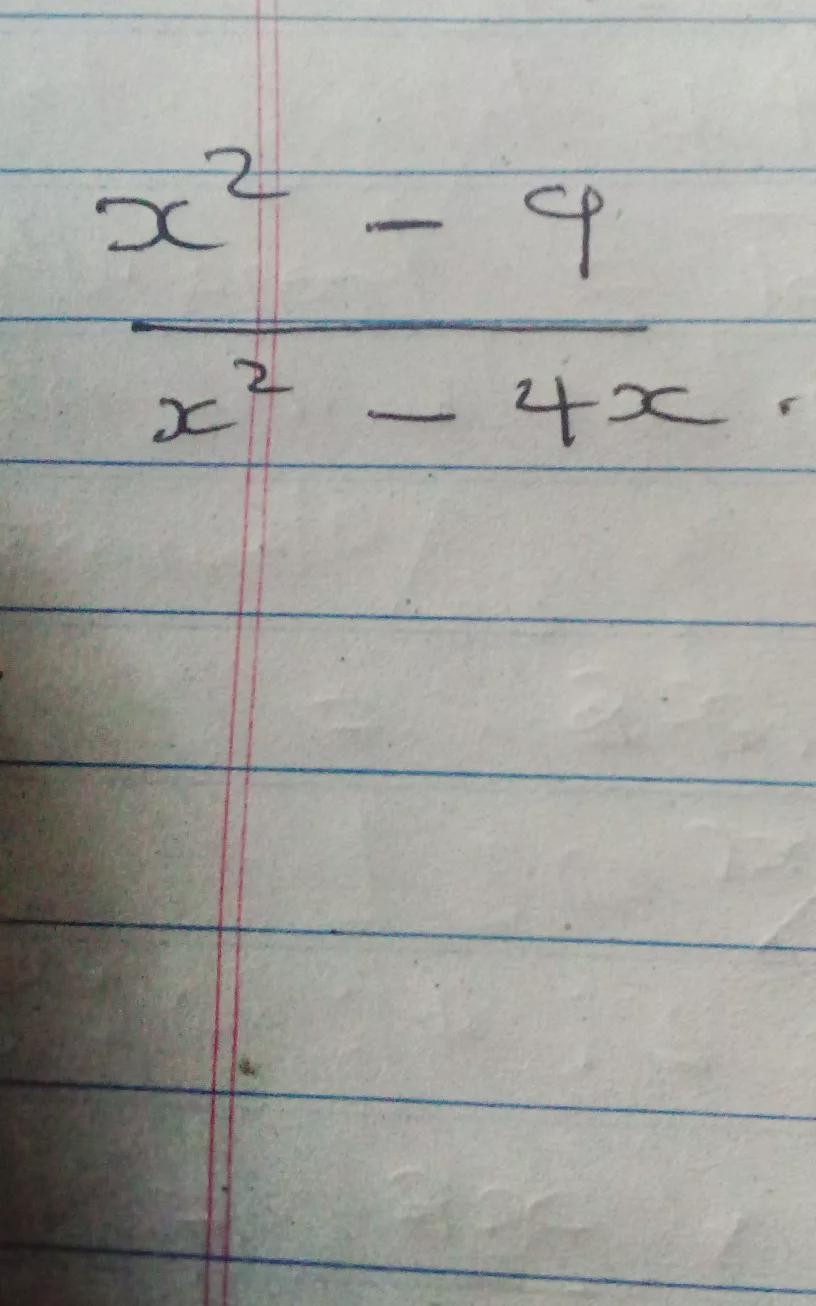 x² - 9
x² - 4x.